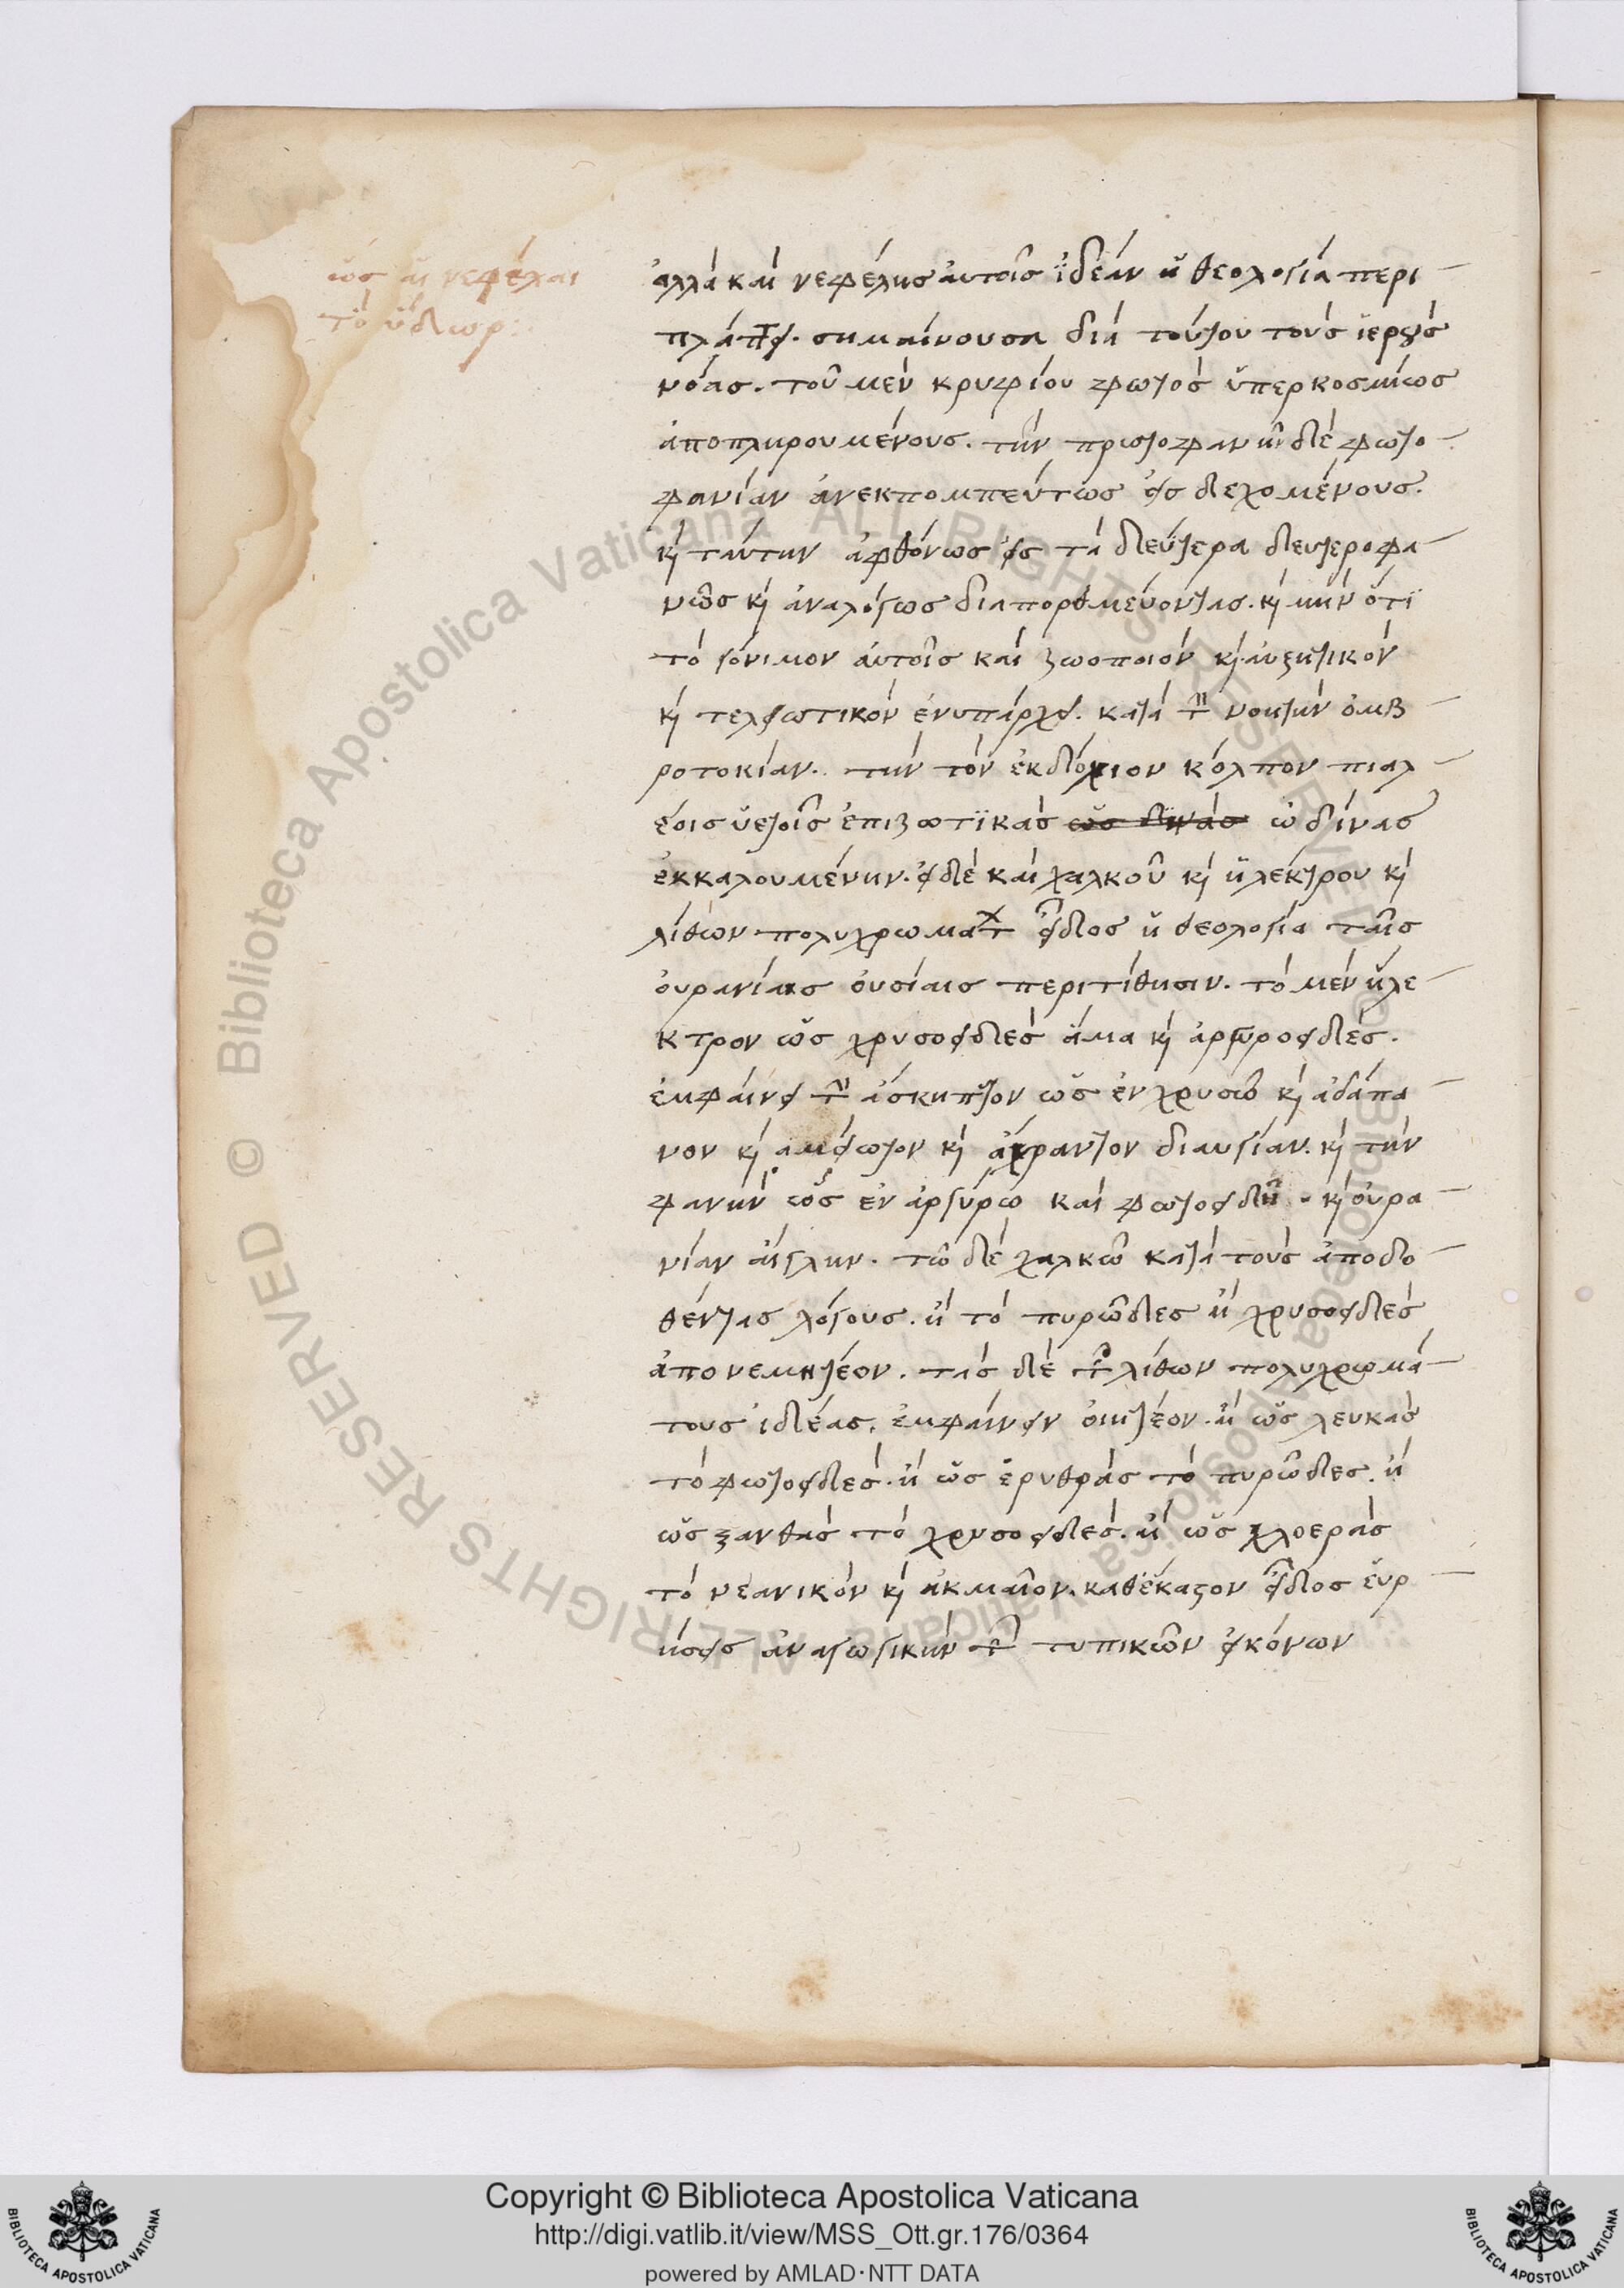 ὡς αἱ νεφέλαι
τὸ ὕδωρ:
ἀλλὰ καὶ νεφέλης αὐτοῖς ἰδέαν ἡ θεολογία περι
πλάττει. σημαίνουσα διὰ τούτου τοὺς ἱεροὺς
νόας. τοῦ μὲν κρυφίου φωτὸς ὑπερκοσμίως
ἀποπληρουμένους. τὴν πρωτοφανῆ δὲ φωτο
φανίαν ἀνεκπομπεύτως εἰσδεχομένους.
κὴ ταύτην ἀφθόνως εἰς τὰ δεύτερα δευτεροφα
νῶς κὴ ἀναλόγως διαπορθμεύοντας. κὴ μὴν ὅτι
τὸ γόνιμον αὐτοῖς καὶ ζωοποιὸν κὴ αὐξητικὸν
κὴ τελειωτικὸν ἐνυπάρχει. κατὰ τὴν νοητὴν ὀμβ
ροτοκίαν. τὴν τὸν ἐκδόχιον κόλπον πιαλ
έοις ὑετοῖς ἐπιζωτικὰς ὡς δικὰς ὠδίνας
ἐκκαλουμένην. εἰ δὲ καὶ χαλκοῦ κὴ ἠλέκτρου κὴ
λίθων πολυχρωμάτων εἶδος ἡ θεολογία ταῖς
οὐρανίαις οὐσίαις περιτίθησιν. τὸ μὲν ἤλε
κτρον ὡς χρυσοειδὲς ἅμα κὴ ἀργυροειδές.
ἐμφαίνει τὴν ἄσκηπτον ὡς ἐν χρυσῷ κὴ ἀδάπα
νον κὴ ἀμείωτον κὴ ἄχραντον διαυγίαν. κὴ τὴν
φανὴν ὡς ἐν ἀργύρῳ καὶ φωτοειδῆ. κὴ οὐρα
νίαν αἴγλην. τῷ δὲ χαλκῷ κατὰ τοὺς ἀποδο
θέντας λόγους. ἢ τὸ πυρῶδες ἢ χρυσοειδὲς
ἀπονεμητέον. τὰς δὲ τῶν λίθων πολυχρωμά
τους ἰδέας. ἐμφαίνειν οἰητέον. ἢ ὡς λευκὰς
τὸ φωτοειδές. ἢ ὡς ἐρυθρὰς τὸ πυρῶδες. ἢ
ὡς ξανθὰς τὸ χρυσοειδές. ἢ ὡς χλοερὰς
τὸ νεανικὸν κὴ ἀκμαῖον. καθ' ἕκαστον εἶδος εὑρ
ήσεις ἀναγωγικὴν τῶν τυπικῶν εἰκόνων
© Biblioteca Apostolica Vaticana ALL RIGHTS RESERVED © Biblioteca Apostolica Vaticana ALL RIGHTS RESERVED
Copyright © Biblioteca Apostolica Vaticana
http://digi.vatlib.it/view/MSS_Ott.gr.176/0364
powered by AMLAD·NTT DATA
BIBLIOTECA APOSTOLICA VATICANA
BIBLIOTECA APOSTOLICA VATICANA